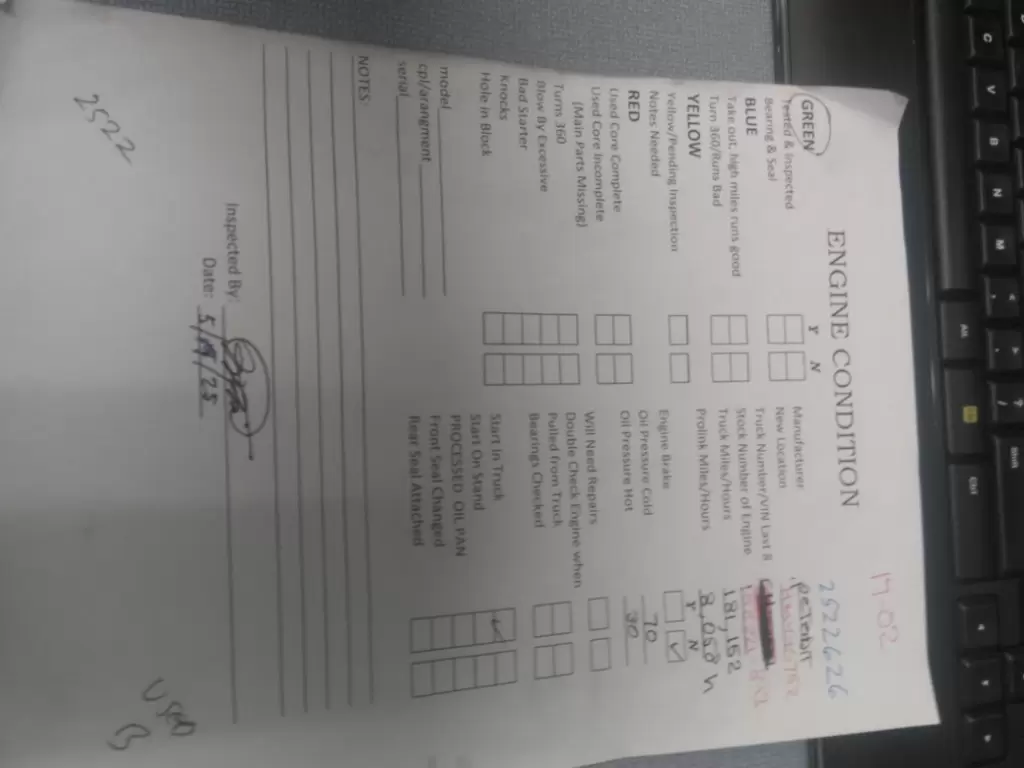 17-02
2522626
ENGINE CONDITION
Y N
GREEN
Tested & Inspected
Bearing & Seal
BLUE
Take out, high miles runs good
Turn 360/Runs Bad
YELLOW
Yellow/Pending Inspection
Notes Needed
RED
Used Core Complete
Used Core Incomplete
(Main Parts Missing)
Turns 360
Blow By Excessive
Bad Starter
Knocks
Hole in Block
model
cpl/arangment
serial
Manufacturer peterbit
New Location
Truck Number/VIN Last 8
Stock Number of Engine
Truck Miles/Hours 181,152
Prolink Miles/Hours 8,050 h
Y N
Engine Brake
Oil Pressure Cold 70
Oil Pressure Hot 30
Will Need Repairs
Double Check Engine when
Pulled from Truck
Bearings Checked
Start In Truck
Start On Stand
PROCESSED OIL PAN
Front Seal Changed
Rear Seal Attached
NOTES:
Inspected By:
Date: 5/19/25
2522
USED
B
C
V
B
N
M
Alt
Ctrl
Shift